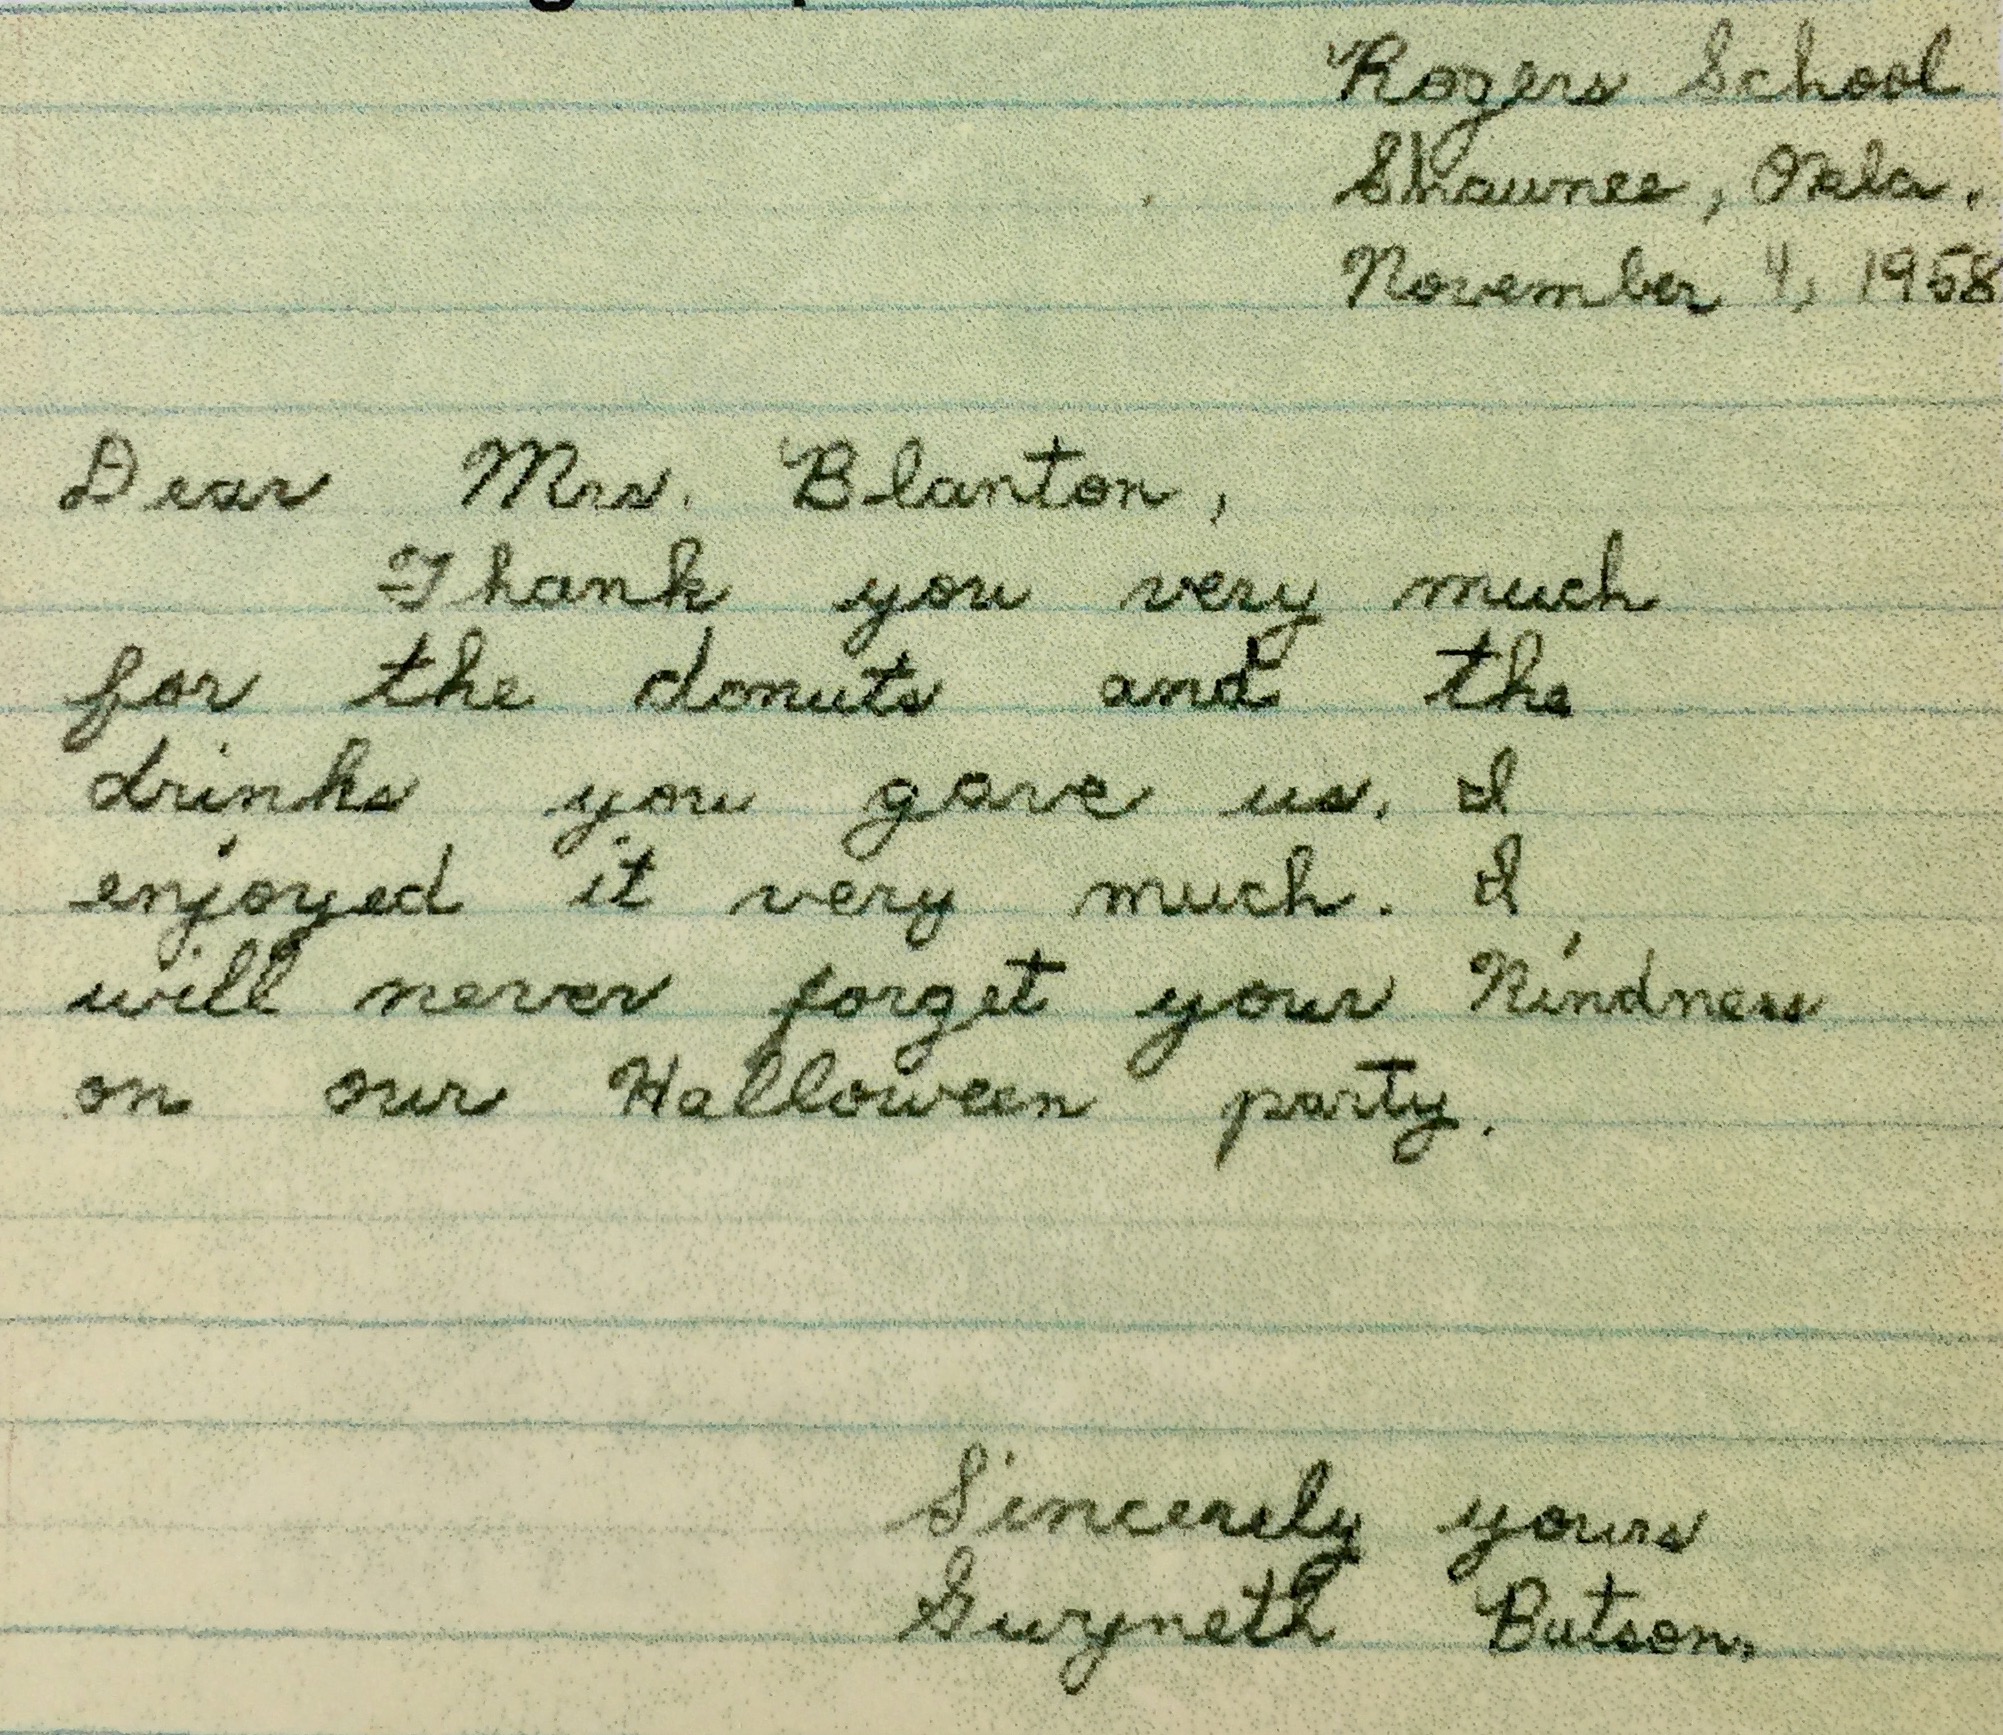 Rogers School
Shawnee, Okla.
November 4, 1958
Dear Mrs. Blanton,
Thank you very much
for the donuts and the
drinks you gave us. I
enjoyed it very much. I
will never forget your Kindness
on our Halloween party.
Sincerely yours
Gwyneth Batson.